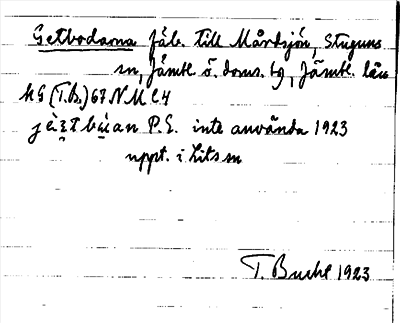 Getbodarna fäb. till Mårdsjön, Stuguns
sn, Jämtl. ö. doms. tg, Jämtl. län
KG (T.B.) 67 N.M. C4
P.E. inte använda 1923
uppt. i Lits sn
T. Bucht 1923